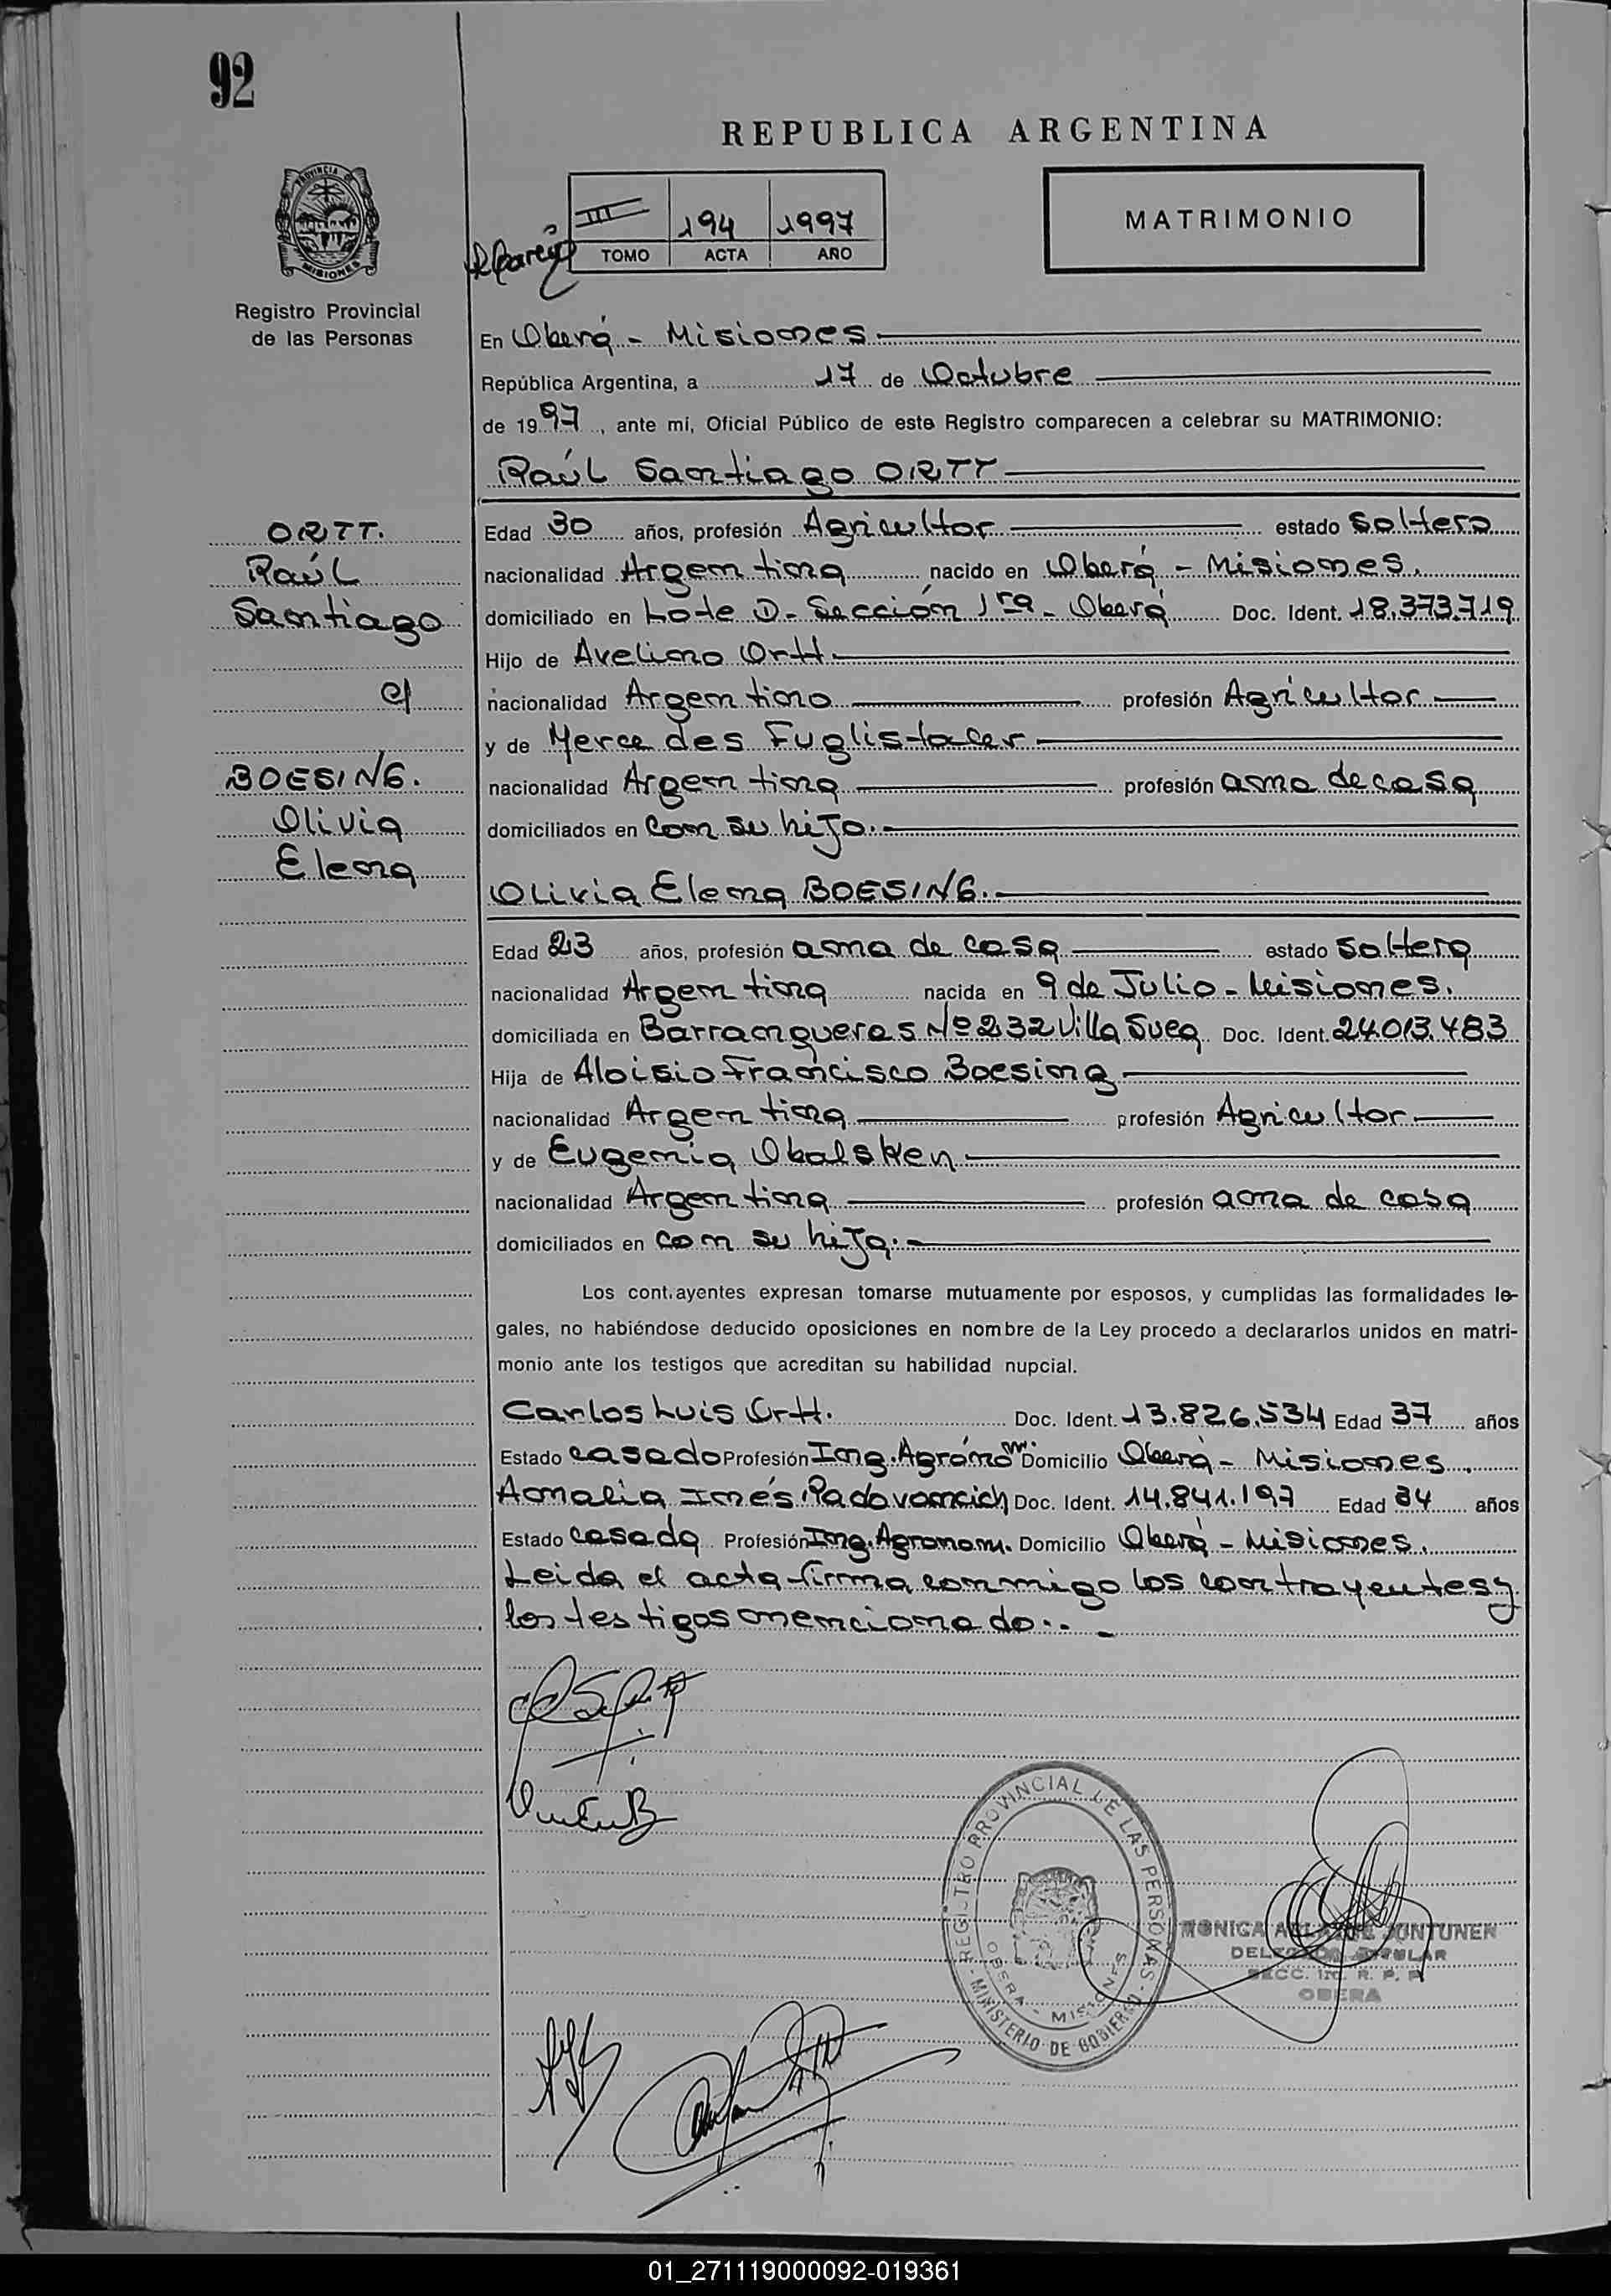 92
REPUBLICA ARGENTINA
PROVINCIA DE
MISIONES
Registro Provincial
de las Personas
III 194 1997
TOMO ACTA AÑO
MATRIMONIO
En Oberá - Misiones
República Argentina, a 17 de Octubre
de 1997, ante mí, Oficial Público de este Registro comparecen a celebrar su MATRIMONIO:
Raúl Santiago ORTT
ORTT.
Raúl
Santiago
c/
BOESING.
Olivia
Elena
Edad 30 años, profesión Agricultor estado Soltero
nacionalidad Argentina nacido en Oberá - Misiones.
domiciliado en Lote D- Sección 1ra - Oberá Doc. Ident. 18.373.719
Hijo de Avelino Ortt
nacionalidad Argentino profesión Agricultor
y de Mercedes Fuglistaler
nacionalidad Argentina profesión ama de casa
domiciliados en con su hijo.
Olivia Elena BOESING.
Edad 23 años, profesión ama de casa estado Soltera
nacionalidad Argentina nacida en 9 de Julio - Misiones.
domiciliada en Barranqueras Nº 232 Villa Suea Doc. Ident. 24.013.483
Hija de Aloisio Francisco Boesing
nacionalidad Argentina profesión Agricultor
y de Eugenia Obalsken
nacionalidad Argentina profesión ama de casa
domiciliados en con su hija.
Los cont.ayentes expresan tomarse mutuamente por esposos, y cumplidas las formalidades le-
gales, no habiéndose deducido oposiciones en nombre de la Ley procedo a declararlos unidos en matri-
monio ante los testigos que acreditan su habilidad nupcial.
Carlos Luis Ortt. Doc. Ident. 13.826.534 Edad 37 años
Estado casado Profesión Ing. Agrónom. Domicilio Oberá - Misiones.
Amalia Inés Padovancich Doc. Ident. 14.841.197 Edad 34 años
Estado casada Profesión Ing. Agronom. Domicilio Oberá - Misiones.
Leida el acta firma conmigo los contrayentes y
los testigos mencionado..
REGISTRO PROVINCIAL DE LAS PERSONAS
OBERA - MISIONES
MINISTERIO DE GOBIERNO
MONICA JUNTUNEN
TITULAR
SECC. 1ra. R. P. P.
OBERA
01_271119000092-019361